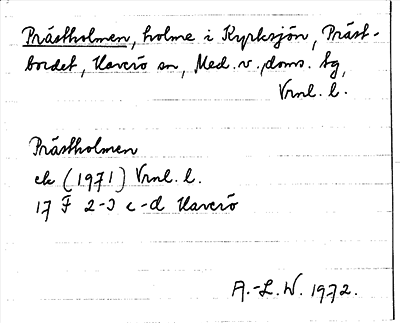 Prästholmen, holme i Kyrksjön, Präst-
bordet, Haverö sn, Med. v. doms. tg,
Vrnl. l.
Prästholmen
ek (1971) Vrnl. l.
17 F 2-3 c-d Haverö
A.-L. W. 1972.